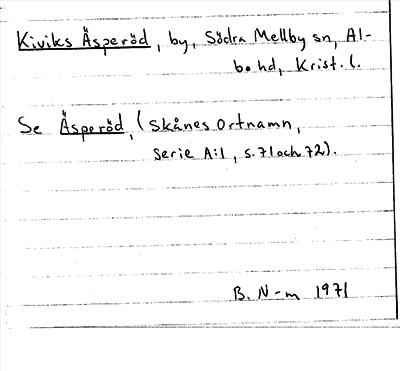 Kiviks Äsperöd, by, Södra Mellby sn, Al-
bo hd, Krist. l.
Se Äsperöd, (Skånes Ortnamn,
serie A:1, s. 71 och 72).
B. N-m 1971